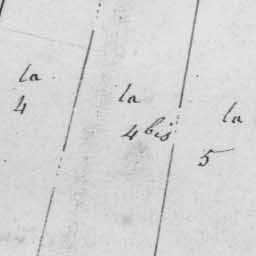 la
4
la
4bis
la
5